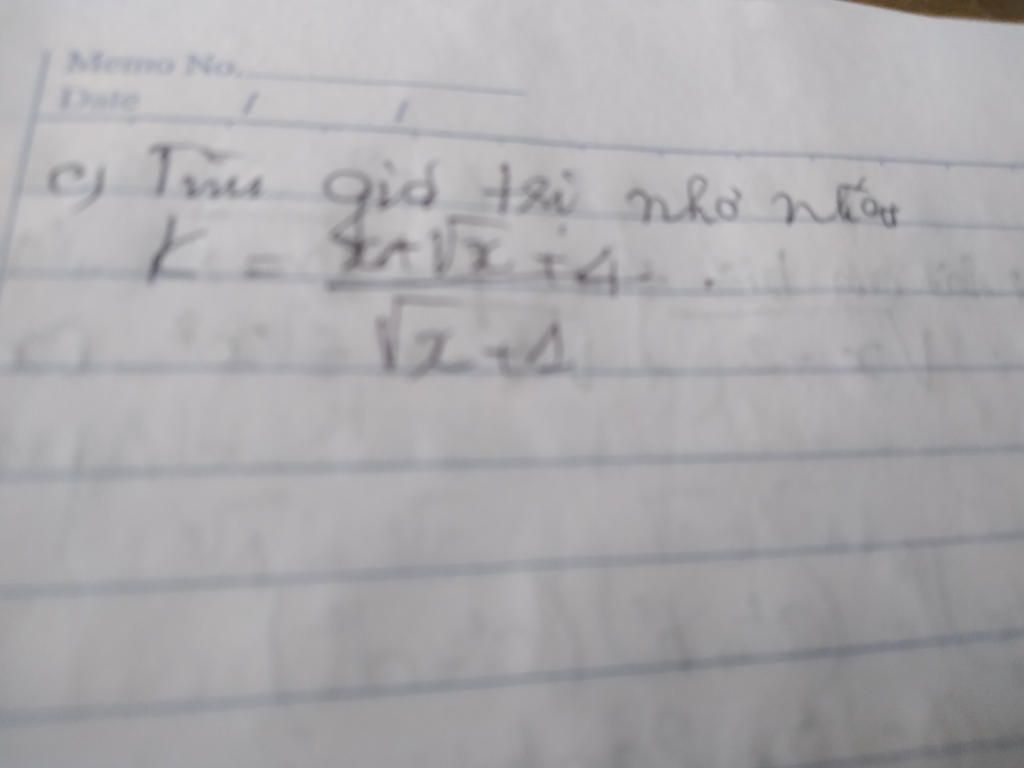 Memo No.
Date / /
c) Tìm giá trị nhỏ nhất
K = x+√x+4
√x+1